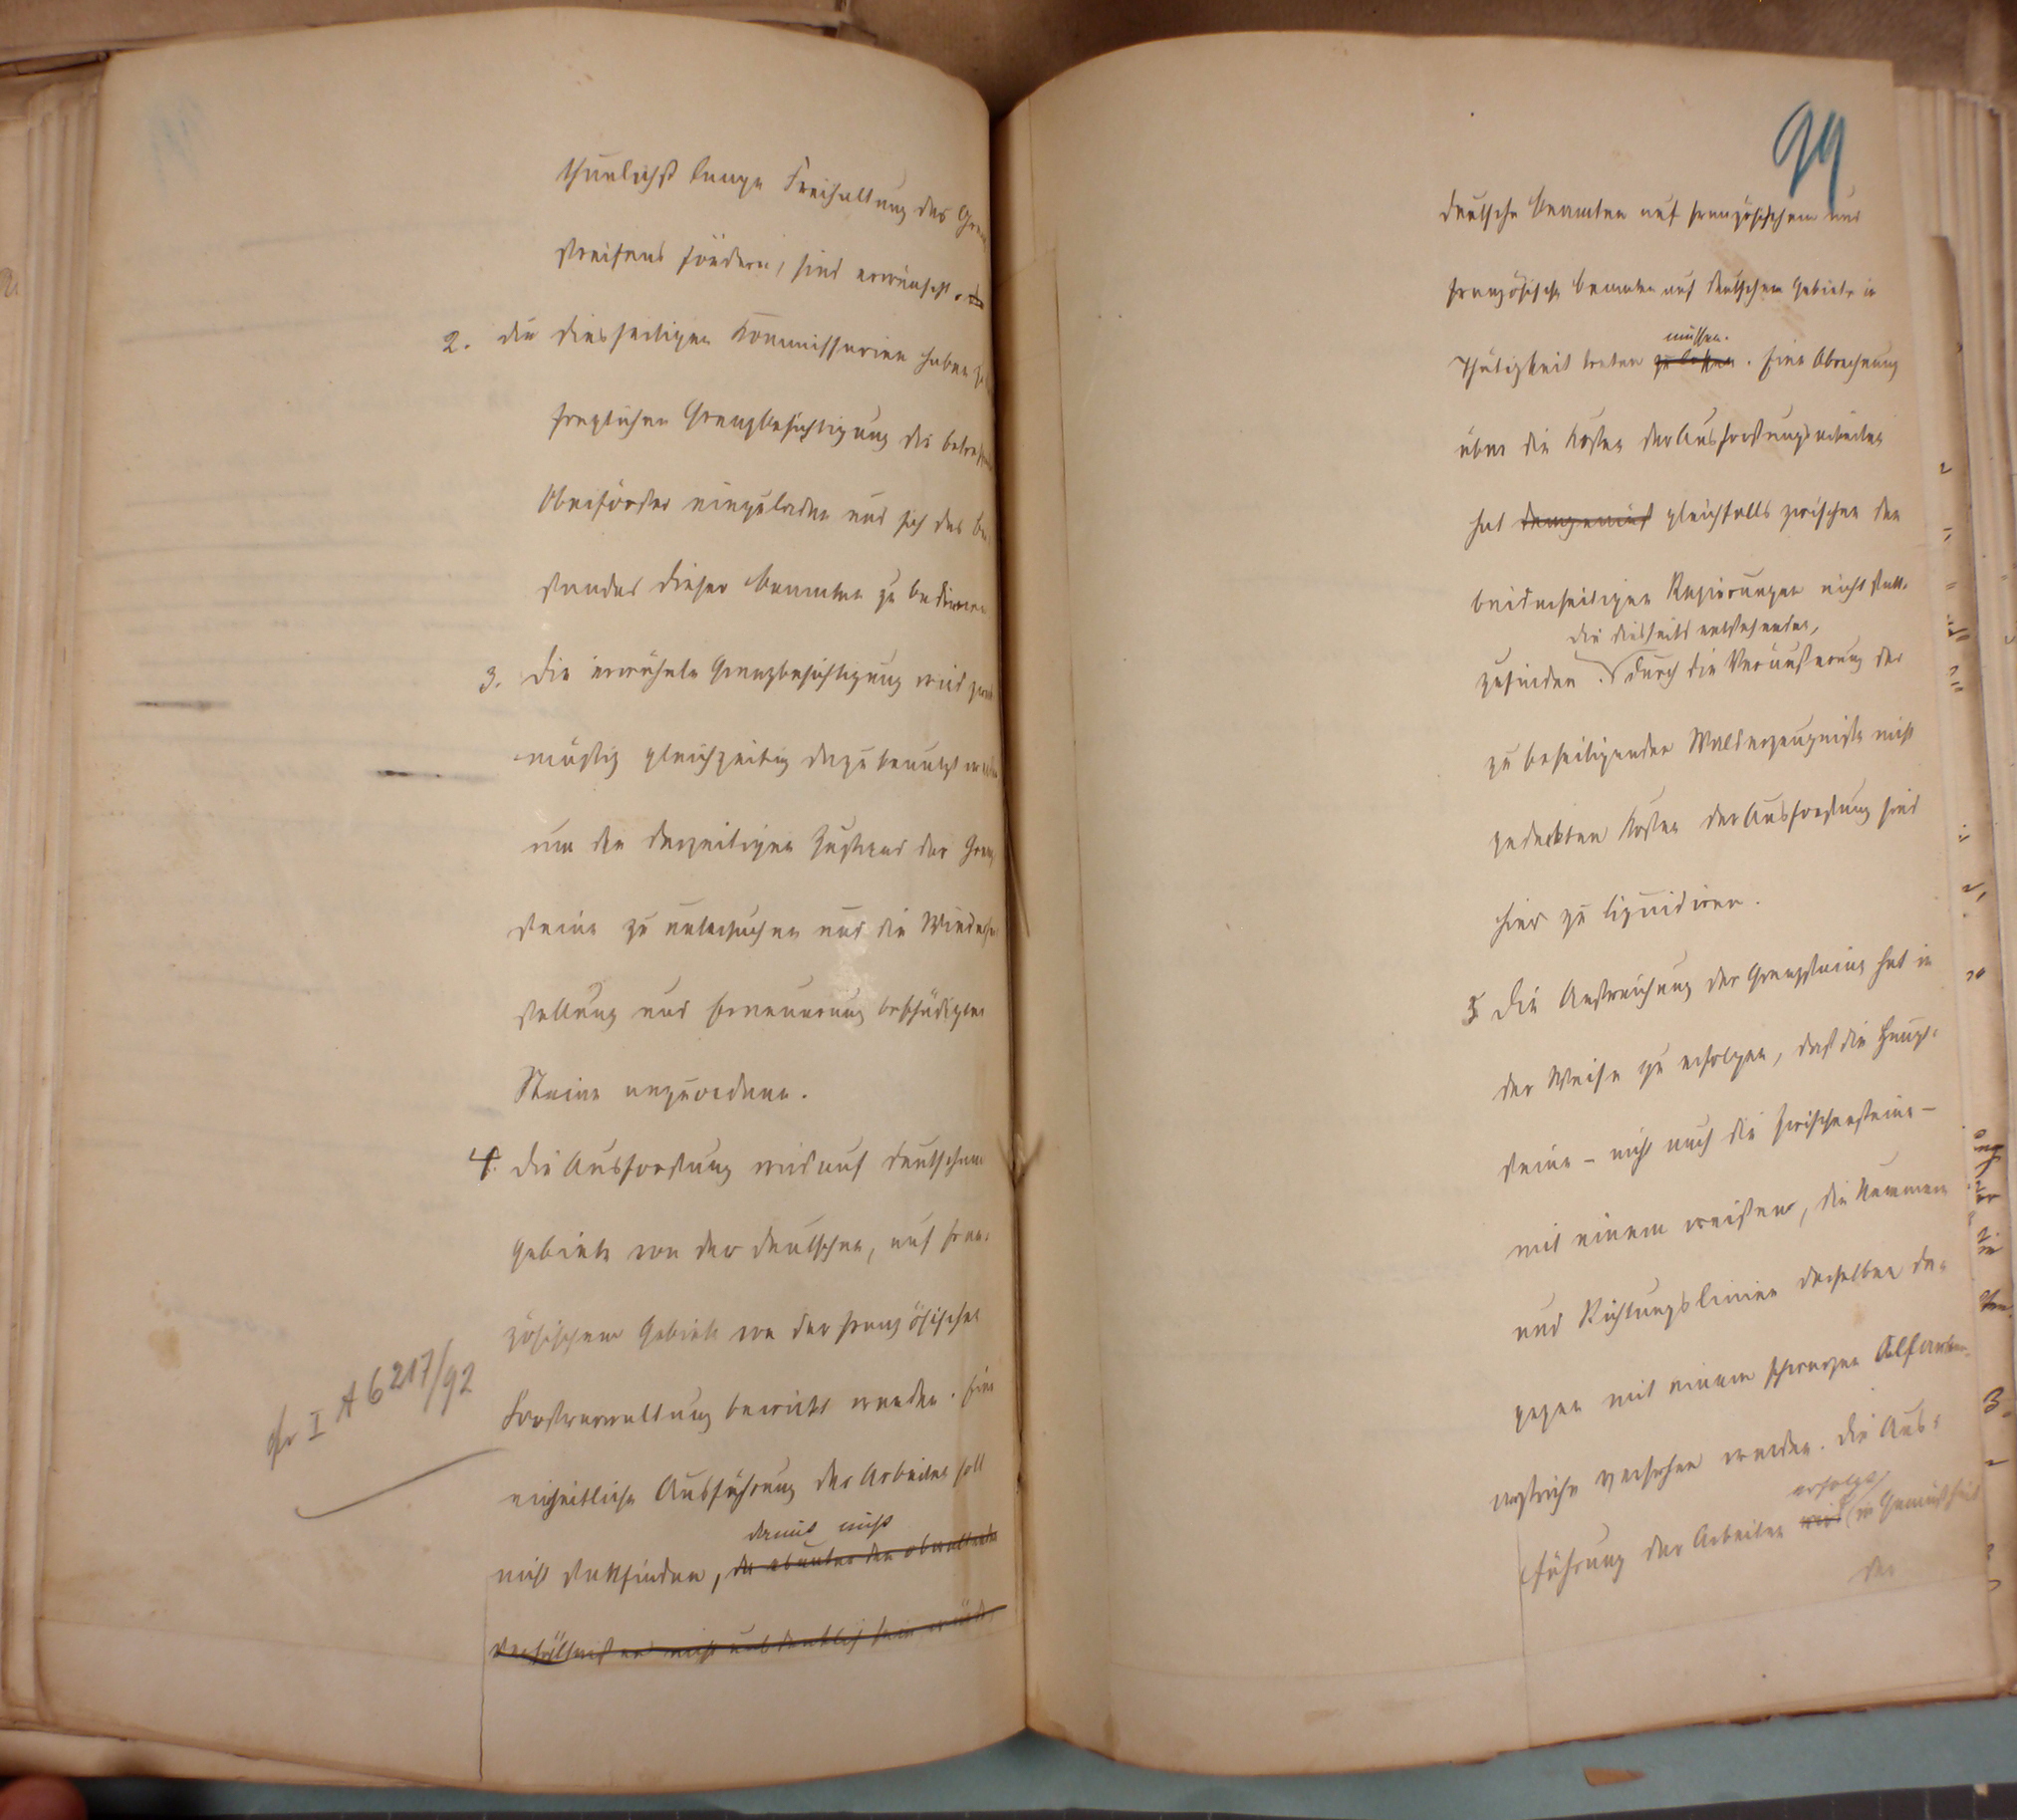 thunlichst lange Freihaltung des Gren
streifens fördern, sind erwünscht.
2. die diesseitigen Kommissarien haben zu
fraglichen Grenzbesichtigung die betref
Oberförster einzuladen und sich des Bei
standes dieser Beamten zu bedienen
3. Die erwähnte Grenzbesichtigung wird zweck
mäßig gleichzeitig dazu benutzt werden
um den derzeitigen Zustand der Grenz
steine zu untersuchen und die Wiederher
stellung und Erneuerung beschädigter
Steine anzuordnen.
4. Die Ausforstung wird auf deutschem
Gebiete von der deutschen, auf fran-
zösischem Gebiete von der französischen
Forstverwaltung bewirkt werden. Eine
einheitliche Ausführung der Arbeiten soll
damit nicht
nicht stattfinden, da
I A 6217/92
99
deutsche Beamten auf französischem und
französische Beamten auf deutschem Gebiete in
müssen.
Thätigkeit treten zu lassen. Eine Abrechnung
über die Kosten der Ausforstungsarbeiten
hat demgemäß gleichfalls zwischen den
beiderseitigen Regierungen nicht statt-
die diesseits entstehenden,
zufinden. durch die Veräußerung der
zu beseitigenden Walderzeugnisse nicht
gedeckten Kosten der Ausforstung sind
hier zu liquidiren.
5 Die Anstreichung der Grenzsteine hat in
der Weise zu erfolgen, daß die Haupt-
steine – nicht auch die Zwischensteine –
mit einem weißen, die Nummern
und Richtungslinien derselben da-
gegen mit einem schwarzen Ölfarben-
anstriche versehen werden. Die Aus-
erfolgt
führung der Arbeiten wird in Gemäßheit
der